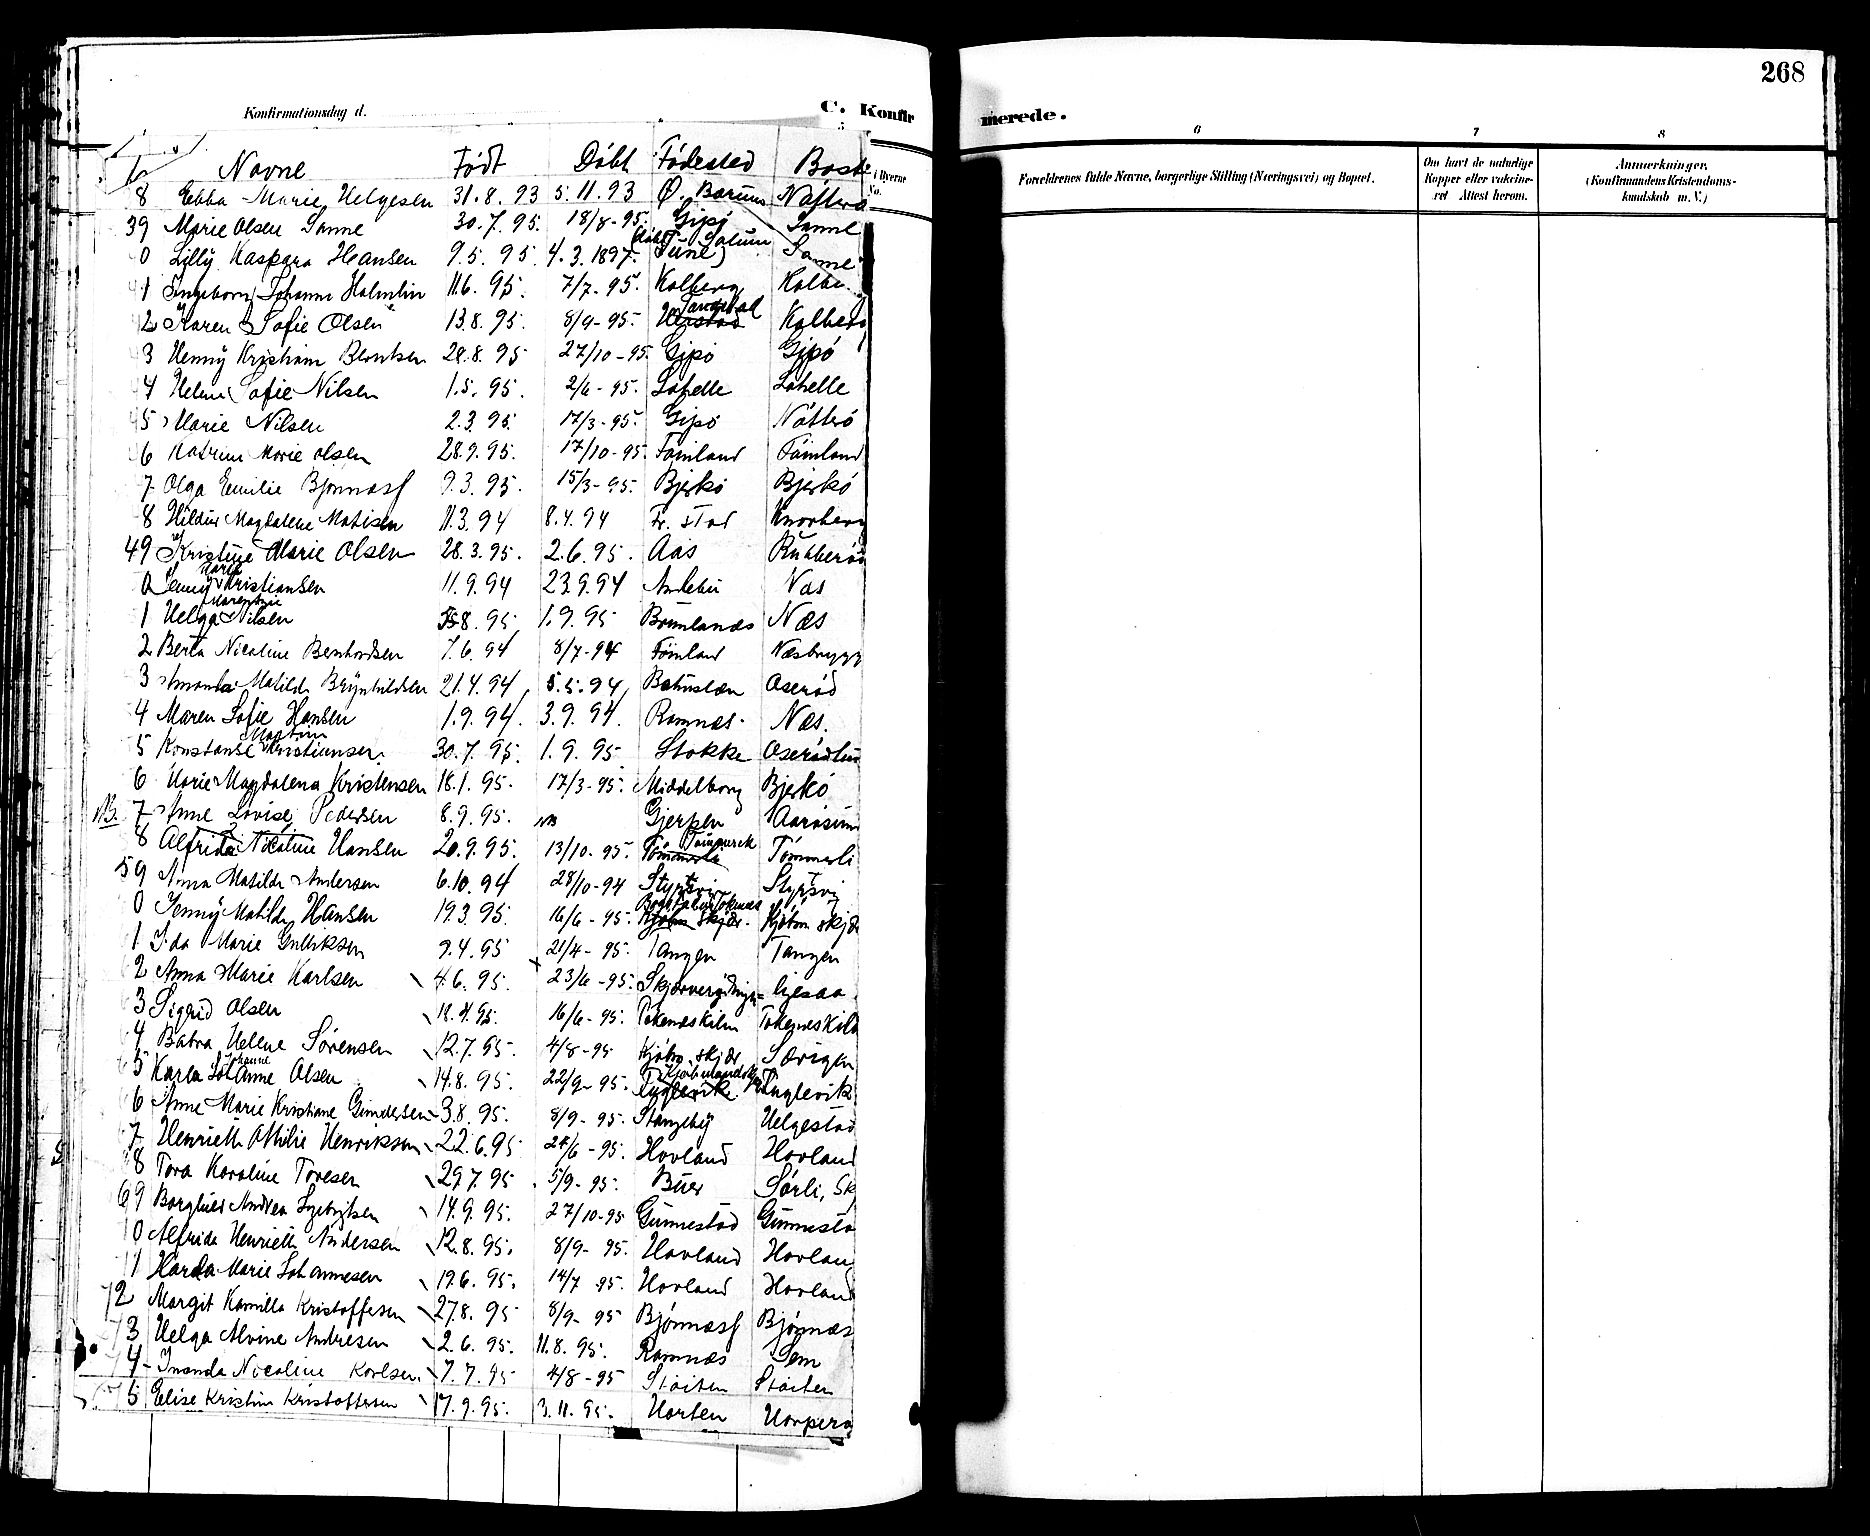 268
Konfirmationsdag d.
C. Konfir
merede.
6 7 8
Forældrenes fulde Navne, borgerlige Stilling (Næringsvei) og Bopæl.
Om havt de naturlige Kopper eller vaccineret. Attest herom.
Anmerkninger. (Konfirmandens Kristendomskundskab m. V.)
Navne Født Døbt Fødested Boste
8 Ebba Marie Helgesen 31.8.93 5.11.93 Ø. Barum Nøtterø
39 Marie Olsen Sanne 30.7.95. 18/8-95. Gipø Sanne
0 Lilly Kaspara Hansen 9.5.95 4.3.1897. Tune Sanne
1 Ingeborg Johanne Holmlin 11.6.95. 7/7-95. Kolberg Kolbe
2 Karen Sofie Olsen 13.8.95. 8/9-95. Kolberg
3 Henny Kristiane Berntsen 28.8.95 27/10-95. Gipø Gipø
4 Helene Sofie Nilsen 1.5.95. 2/6-95. Løhelle Løhelle
45 Marie Nilsen 2.3.95. 17/3-95. Gipø Nøtterø
6 Katrine Marie Olsen 28.9.95. 17/10-95. Føinland Føinland
7 Olga Emilie Bjønnæss 9.3.95. 15/3-95. Bjerkø Bjerkø
8 Hildur Magdalene Matisen 11.3.94 8.4.94 Fr. stad Knorberg
49 Kristine Marie Olsen 28.3.95. 2.6.95. Aas Rubberød
0 Jenny Marie Kristiansen 11.9.94 23.9.94 Andebu Næs
1 Helga Nilsen 8.95 1.9.95 Brunlanæs Næs
2 Berta Nicoline Bernhardsen 7.6.94 8/7-94 Føinland Næsbrygg
3 Amanda Matilde Brynhildsen 21.4.94 5.5.94 Bohuslen Oserød
4 Maren Sofie Hansen 1.9.94. 3.9.94. Ramnæs. Næs.
5 Konstanse Martine Kristiansen. 30.7.95. 1.9.95 Stokke Oserødlun
6 Marie Magdalena Kristensen 18.1.95. 17/3-95. Middelborg Bjerkø
NB. 7 Anne Lovise Pedersen 8.9.95. NB Gjerpen Aarøsund
8 Alfrida Nicoline Hansen 20.9.95. 13/10-95. Tømmerli Tømmerli
59 Anna Matilde Andersen 6.10.94 28/10-94 Styrsvig Styrsvig
0 Jenny Matilde Hansen 19.3.95. 16/6-95. Kjøbm skjær. Kjøbm skjæ
1 Ida Marie Gulliksen 9.4.95 21/4-95. Tangen Tangen
2 Anna Marie Karlsen 4.6.95. 23/6-95.
3 Sigrid Olsen 18.4.95. 16/6-95. Tokenæskiln Tokeneskiln
4 Babra Helene Sørensen 12.7.95. 4/8-95 Kjøbm. skjær Særigen
5 Karla Johanne Olsen 14.8.95. 22/9-95. Fuglevik Fuglevik
6 Anne Marie Kristiane Gundersen 3.8.95. 8/9-95. Stangeby Helgestad
7 Henriette Otilie Henriksen 22.6.95 24/6-95. Hovland Hovland
8 Tora Karoline Toresen 29.7.95 5/9-95. Buer Sørli, Sk
69 Borghild Andrea Syvertsen 14.9.95. 27/10-95 Gunnestad Gunnesta
0 Alfrida Henriette Andersen 12.8.95. 8/9-95. Hovland Hovlan
1 Harda Marie Johannesen 19.6.95. 14/7-95. Hovland Hovland
72 Margit Kamilla Kristoffersen 27.8.95 8/9-95 Bjønnæss Bjønnæs
73 Helga Alvine Andresen 2.6.95. 11.8.95. Ramnæs Sem
4 Inanda Nicoline Karlsen. 7.7.95 4/8-95 Støiten Støiten
75 Elise Kristine Kristoffersen 17.9.95. 3.11.95. Horten Horperø